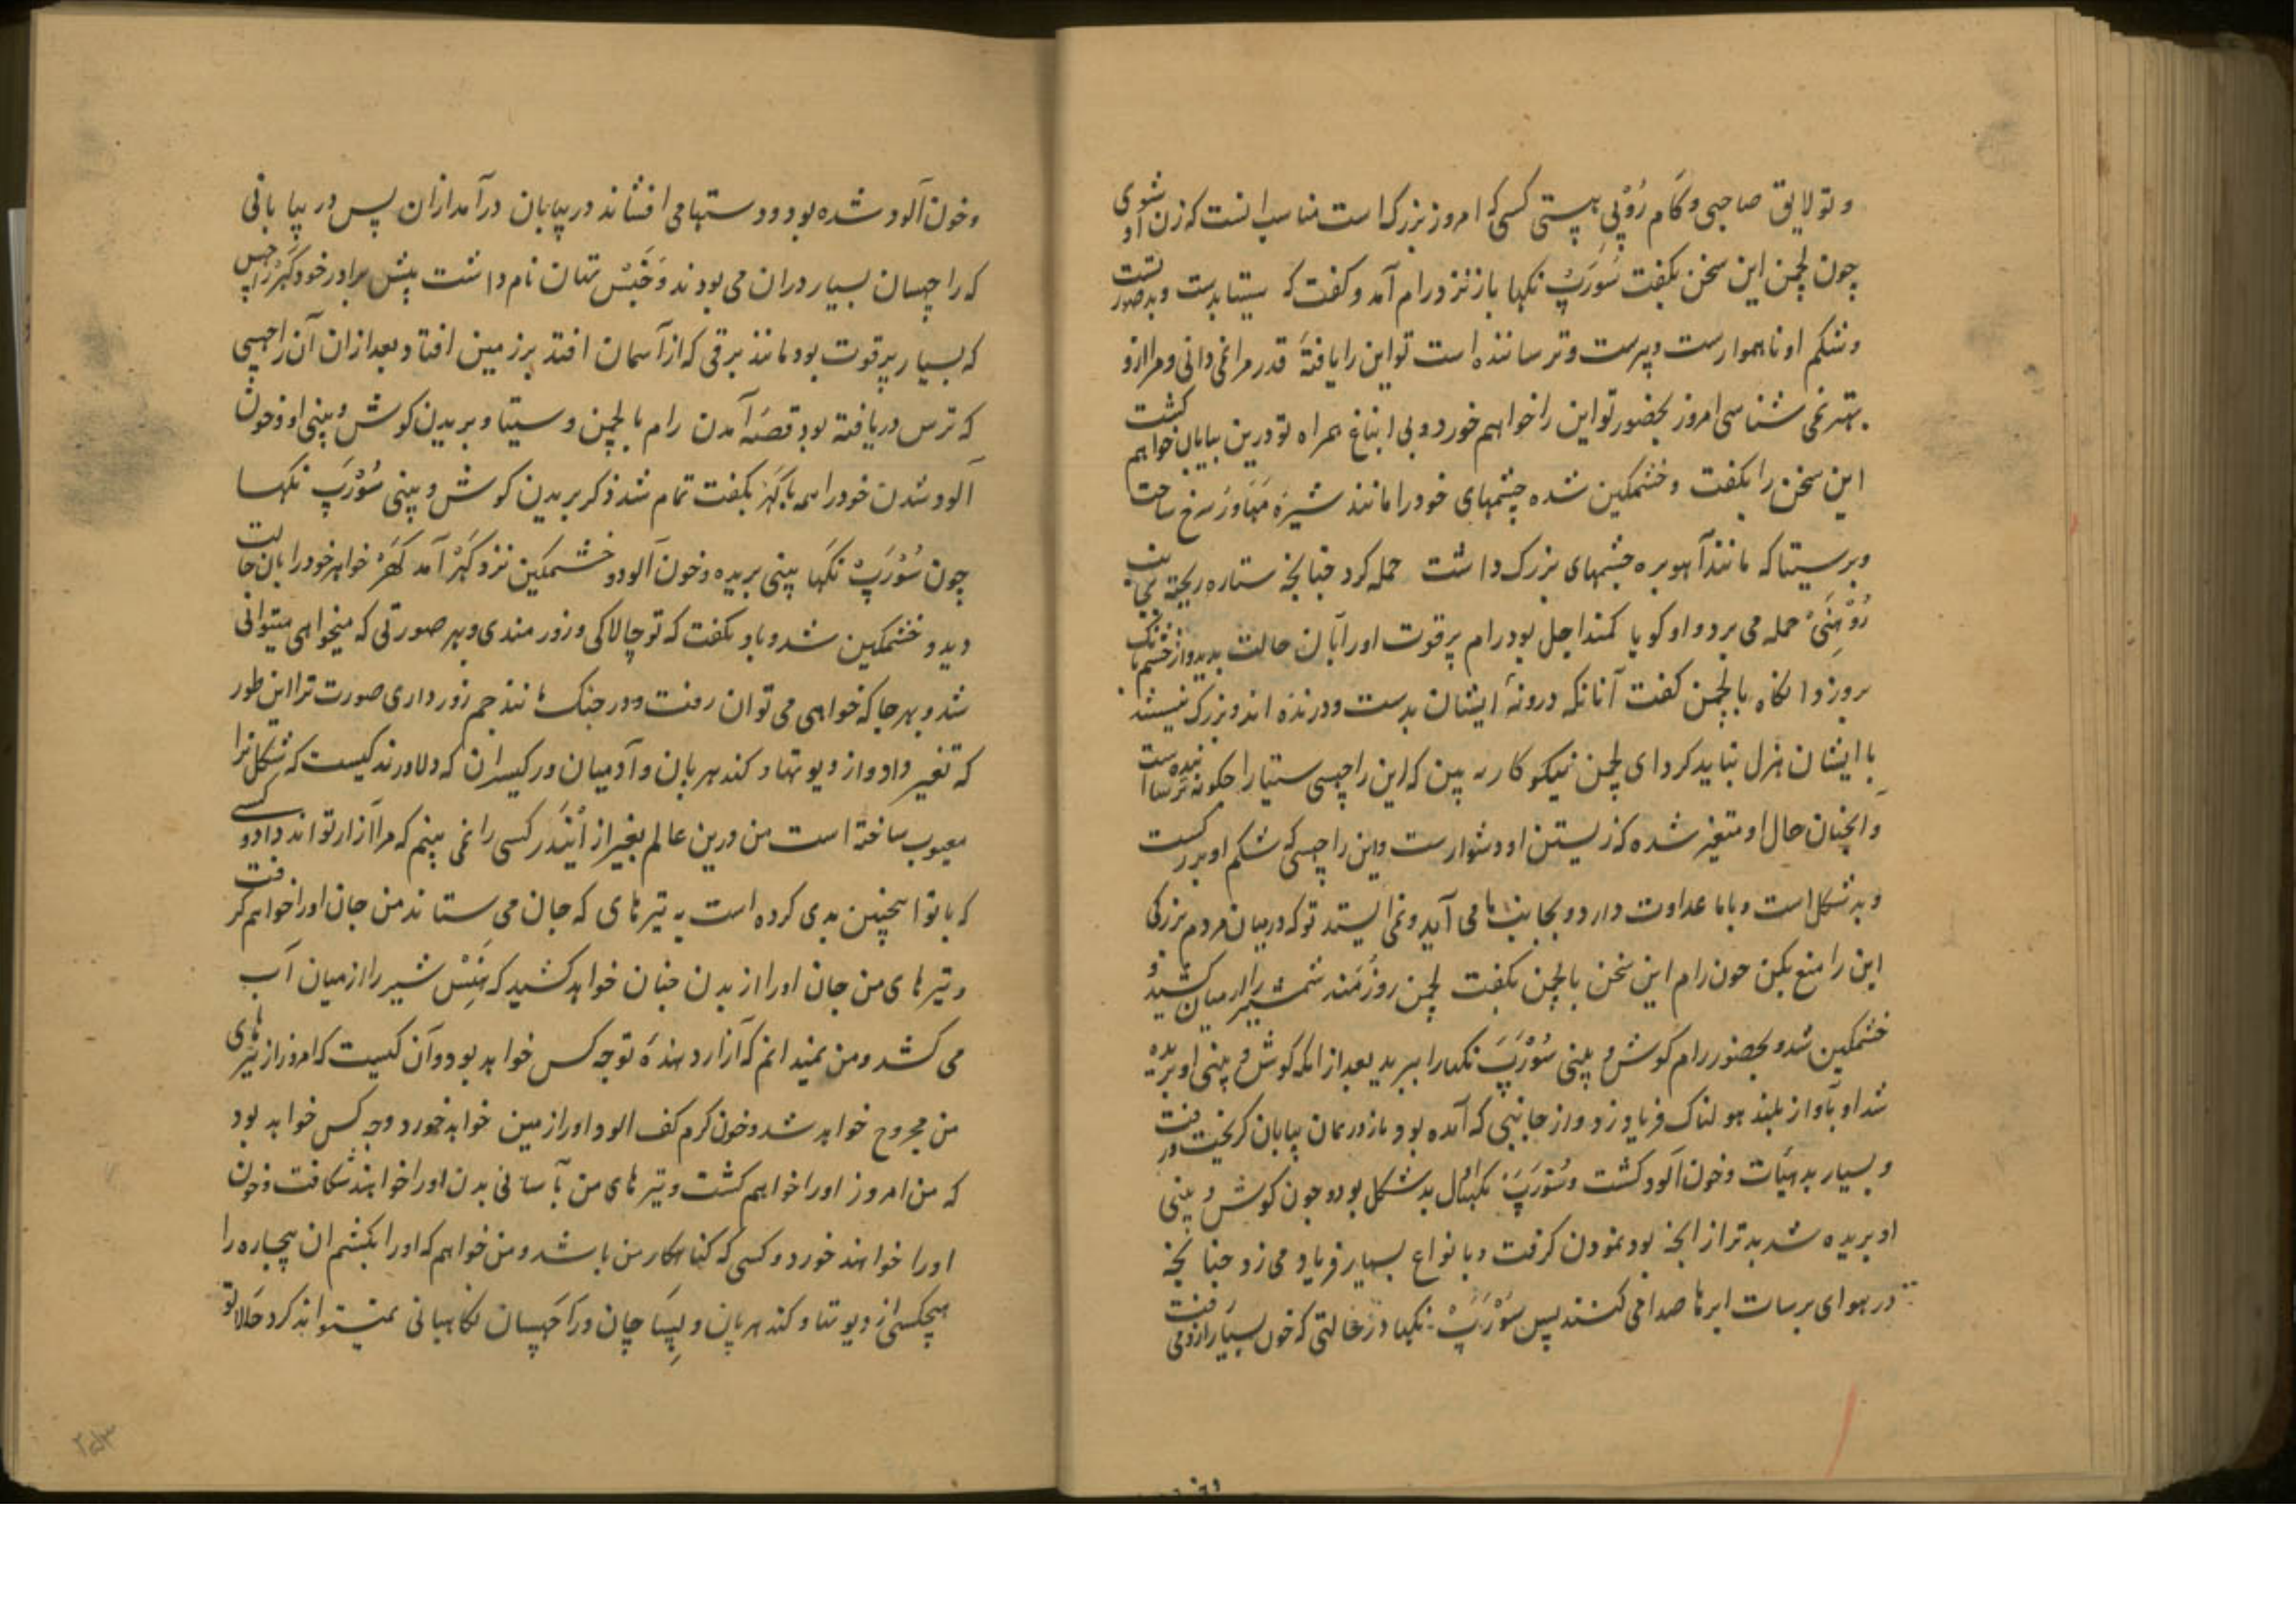 و تو لایق صاحبی و کام رُوْپِي هستی کسی که امروز بزرگ است مناسب انست که زن او شوی
چون لچمن این سخن بکفت سُورَپْ نکها باز نزد رام آمد و کفت که سیتا بدست و بدصورتست
و شکم او ناهموارست و پیرست و ترساننده است تو این را یافتهٔ قدر مرا نمی دانی و مرا ازو
بهتر نمی شناسی امروز بحضور تو این را خواهم خورد و بی انباغ همراه تو درین بیابان خواهم کشت
این سخن را بکفت و خشمکین شده چشمهای خود را مانند شیرهٔ مَهَاوَر سرخ ساخت
و بر سیتا که مانند آهو بره چشمهای بزرک داشت حمله کرد چنانچه ستاره ریخته می
رُوْهِنَیْ حمله می برد و او کویا کمند اجل بود رام پرقوت او را بآن حالت بدید و از خشم
بروزد انکاه با لچمن کفت آنانکه درونهٔ ایشان بدست و درنده اند و بزرک نیستند
با ایشان هزل نباید کرد ای لچمن نیکوکار ببین که این راچهسی سیتا را چکونه ترسانیده است
و آنچنان حال او متغیر شده که زیستن او دشوارست و این راچهسی که شکم او بزرکست
و بدشکل است و با ما عداوت دارد و بجانب ما می آید و نمی ایستد تو که درمیان مردم بزرکی
این را منع بکن چون رام این سخن با لچمن بکفت لچمن زورمند شمشیر را از میان کشید و
خشمکین شد و بحضور رام کوش و بینی سُوْرَپَ نکها را ببرید بعد از انکه کوش و بینی او بریده
شد او بآواز بلند هولناک فریاد زد و از جانبی که آمده بود باز در همان بیابان کریخت و رفت
و بسیار بدهیأت و خون آلود کشت و سُوْرَپَ نکها اول بدشکل بود و چون کوش و بینی
او بریده شد بدتر از انچه بود نمودن کرفت و بانواع بسیار فریاد می زد چنانچه
در هوای برسات ابرها صدا می کنند پس سُوْرَپْ نکها در حالتی که خون بسیار از وی می رفت
و خون آلود شده بود و دستها می افشاند در بیابان درآمد از ان پس در بیابانی
که راچهسان بسیار دران می بودند و جَنَسْ تتان نام داشت پیش برادر خود کهَرْ راچهس
که بسیار پرقوت بود مانند برقی که از آسمان افتد بر زمین افتاد بعد از ان آن راچهسی
که ترس دریافته بود قصهٔ آمدن رام با لچمن و سیتا و بریدن کوش و بینی او و خون
آلود شدن خود را همه با کهَرْ بکفت تمام شد ذکر بریدن کوش و بینی سُوْرَپَ نکها
چون سُوْرَپْ نکها بینی بریده و خون آلود و خشمکین نزد کهَرْ آمد کَهَرْ خواهر خود را بآن حالت
دید و خشمکین شد و باو بکفت که تو چالاکی و زورمندی و بهر صورتی که میخواهی میتوانی
شد و بهر جا که خواهی می توان رفت و در جنک مانند جم زور داری صورت ترا این طور
که تغیر داد و از دیوتها و کندهربان و آدمیان و رکیسران که دلاورند کیست که شکل ترا
معیوب ساخته است من درین عالم بغیر از اَیْنْدَر کسی را نمی بینم که مرا آزار تواند داد و کسی
که با تو اینچنین بدی کرده است به تیرهای که جان می ستانند من جان او را خواهم کرفت
و تیرهای من جان او را از بدن چنان خواهد کشید که هَنَسْ شیر را از میان آب
می کشد و من نمیدانم که آزار دهندهٔ تو چه کس خواهد بود و آن کیست که امروز از تیرهای
من مجروح خواهد شد و خون کرم کف آلود او را زمین خواهد خورد و چه کس خواهد بود
که من امروز او را خواهم کشت و تیرهای من بآسانی بدن او را خواهند شکافت و خون
او را خواهند خورد و کسی که کناهکار من باشد و من خواهم که او را بکشم ان بیچاره را
هیچکس از دیوتها و کندهربان و پِیسَا چان و راچهسان نکاهبانی نمیتواند کرد حالا تو